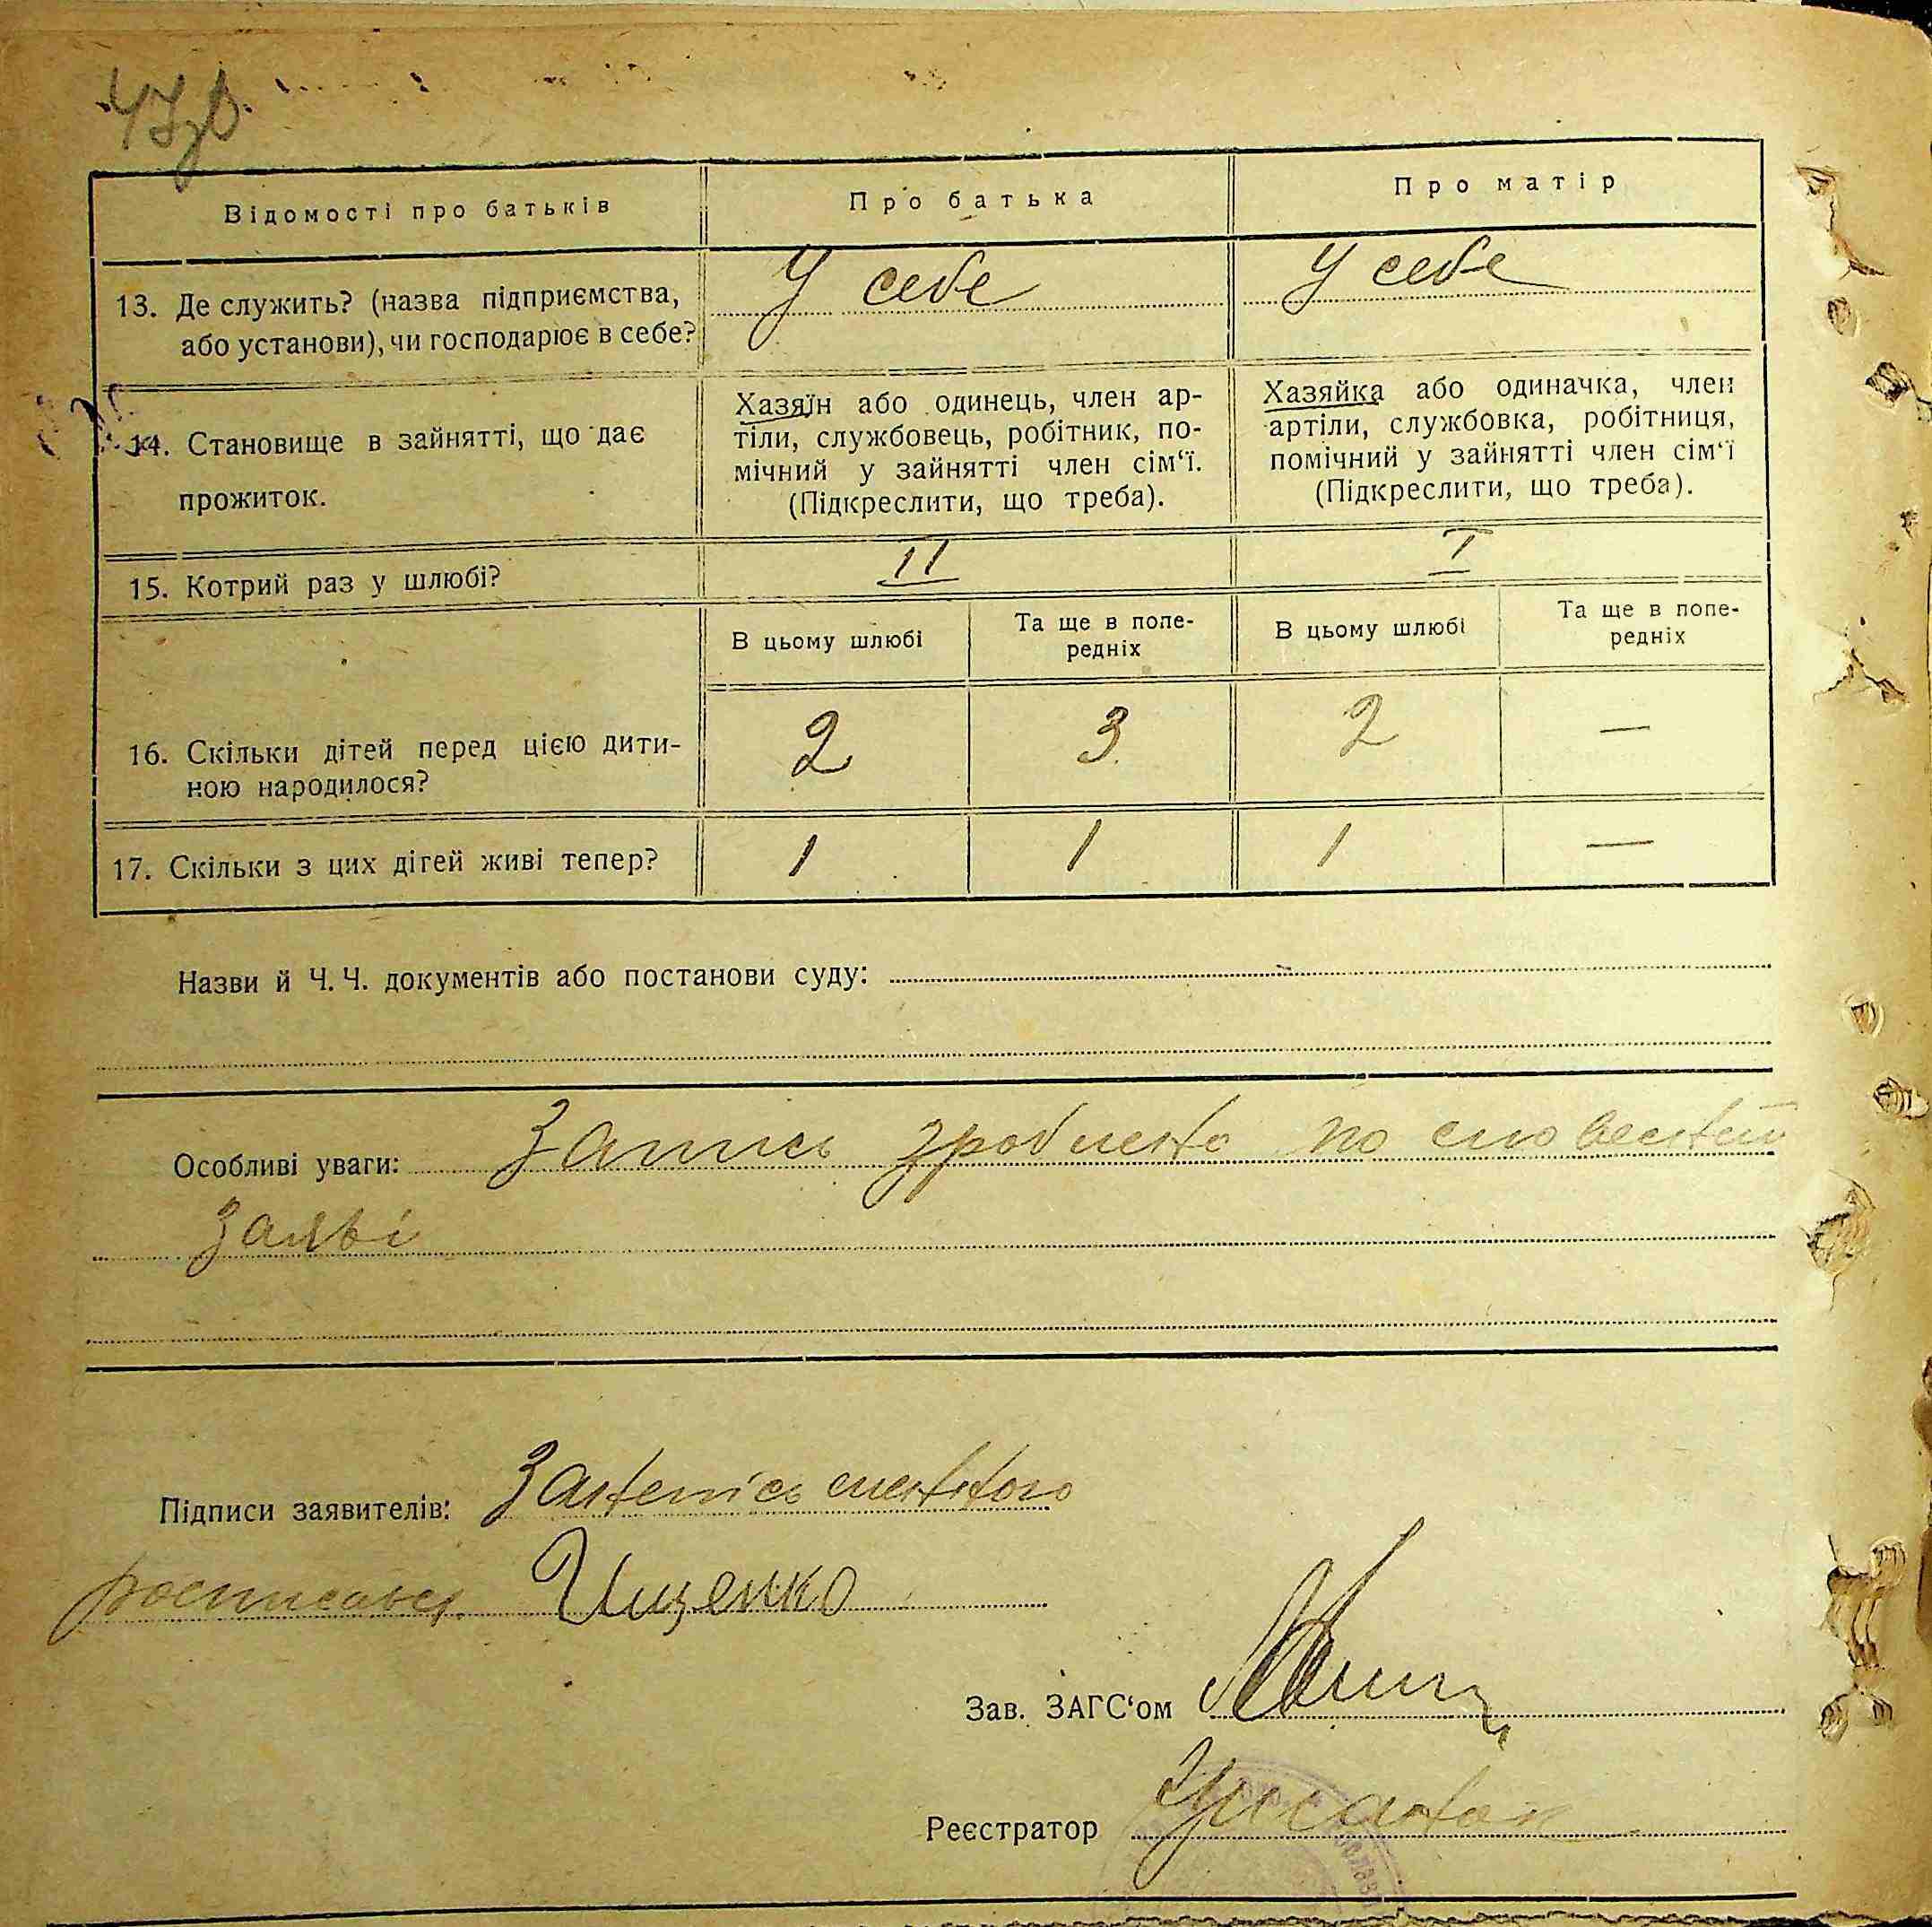 47зв.
Відомості про батьків
Про батька
Про матір
13. Де служить? (назва підприємства,
або установи), чи господарює в себе?
У себе
У себе
14. Становище в зайнятті, що дає
прожиток.
Хазяїн або одинець, член ар-
тіли, службовець, робітник, по-
мічний у зайнятті член сім‘ї.
(Підкреслити, що треба).
Хазяйка або одиначка, член
артіли, службовка, робітниця,
помічний у зайнятті член сім‘ї
(Підкреслити, що треба).
15. Котрий раз у шлюбі?
II
I
В цьому шлюбі
Та ще в попе-
редніх
В цьому шлюбі
Та ще в попе-
редніх
16. Скільки дітей перед цією дити-
ною народилося?
2
3
2
—
17. Скільки з цих дітей живі тепер?
1
1
1
—
Назви й Ч. Ч. документів або постанови суду:
Особливі уваги: Запись зроблено по словестій
заяві
Підписи заявителів:
росписався Ищенко
Зав. ЗАГС‘ом
Реєстратор